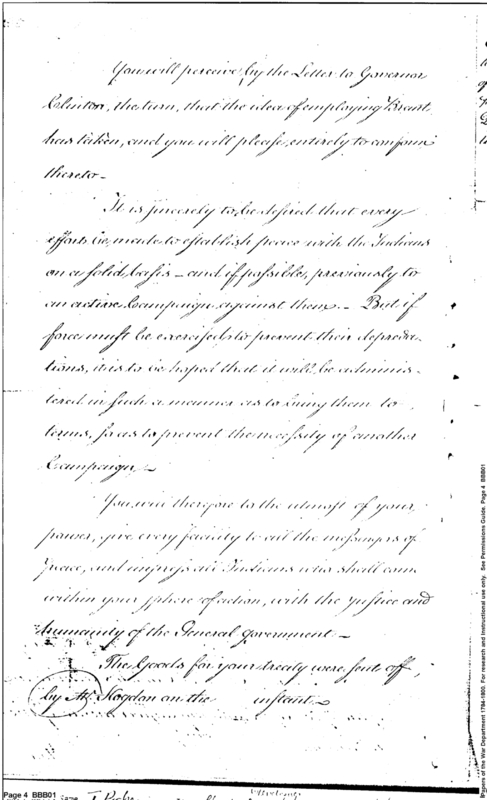 You will perceive, by the Letter to Governor
Clinton, the turn, that the idea of employing Brant,
has taken, and you will please, entirely to conform
thereto —
It is sincerely to be desired that every
effort be, made to establish peace with the Indians
on a solid basis — and if possible, previously to
an active Campaign against them. — But if
force must be exercised to prevent their depreda-
tions, it is to be hoped that it will be adminis-
tered in such a manner as to bring them to
terms, so as to prevent the necessity of another
Campaign. —
You will therefore to the utmost of your
power, give every facility to all the messengers of
Peace, and impress all Indians who shall come
within your sphere of action, with the justice and
humanity of the General government —
The Goods for your treaty were sent off,
by Mr. Hogdon on the instant. —
Page 4 BBB01
Papers of the War Department 1784-1800. For research and instructional use only. See Permissions Guide. Page 4 BBB01